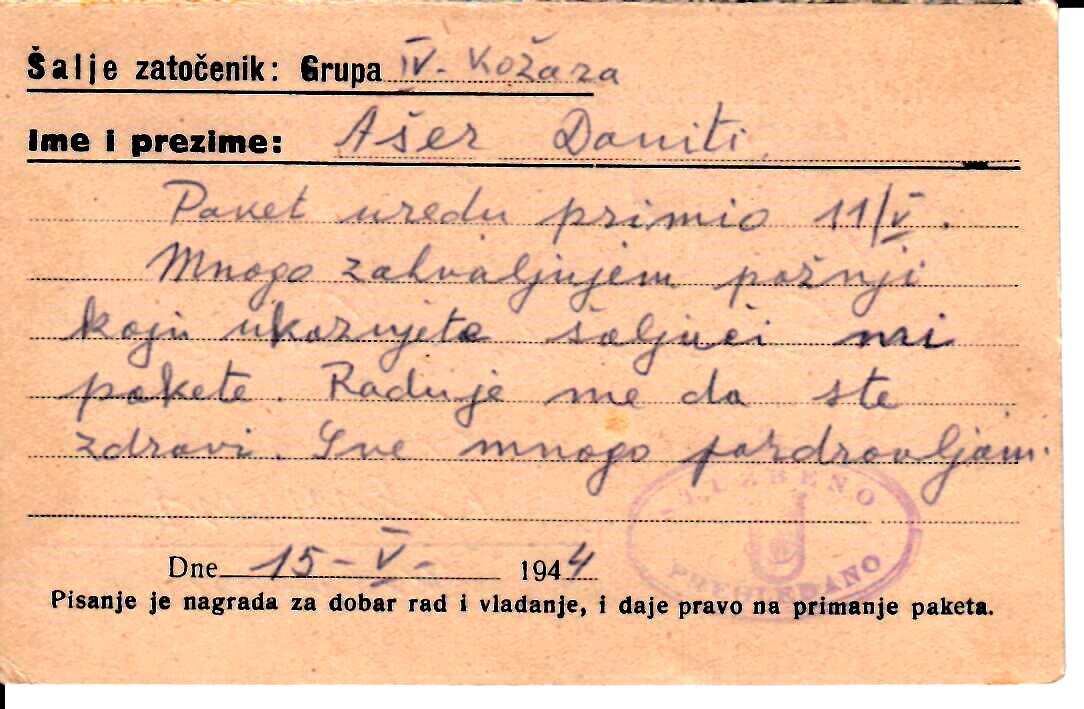 Šalje zatočenik: Grupa IV. Kožara
Ime i prezime: Ašer Daniti
Paket uredu primio 11/V.
Mnogo zahvaljujem pažnji
koju ukazujete šaljući mi
pakete. Raduje me da ste
zdravi. Sve mnogo pozdravljam.
Dne 15-V- 1944
Pisanje je nagrada za dobar rad i vladanje, i daje pravo na primanje paketa.